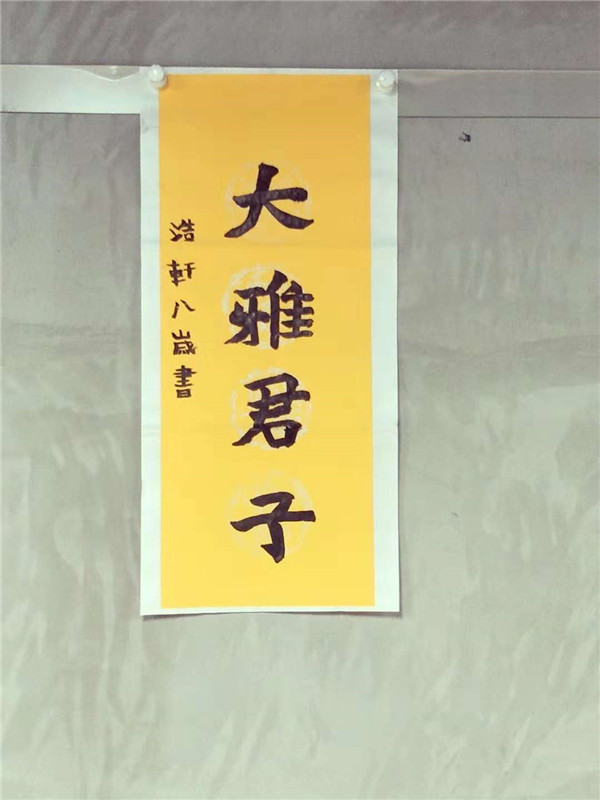 大雅君子
浩軒八歲書